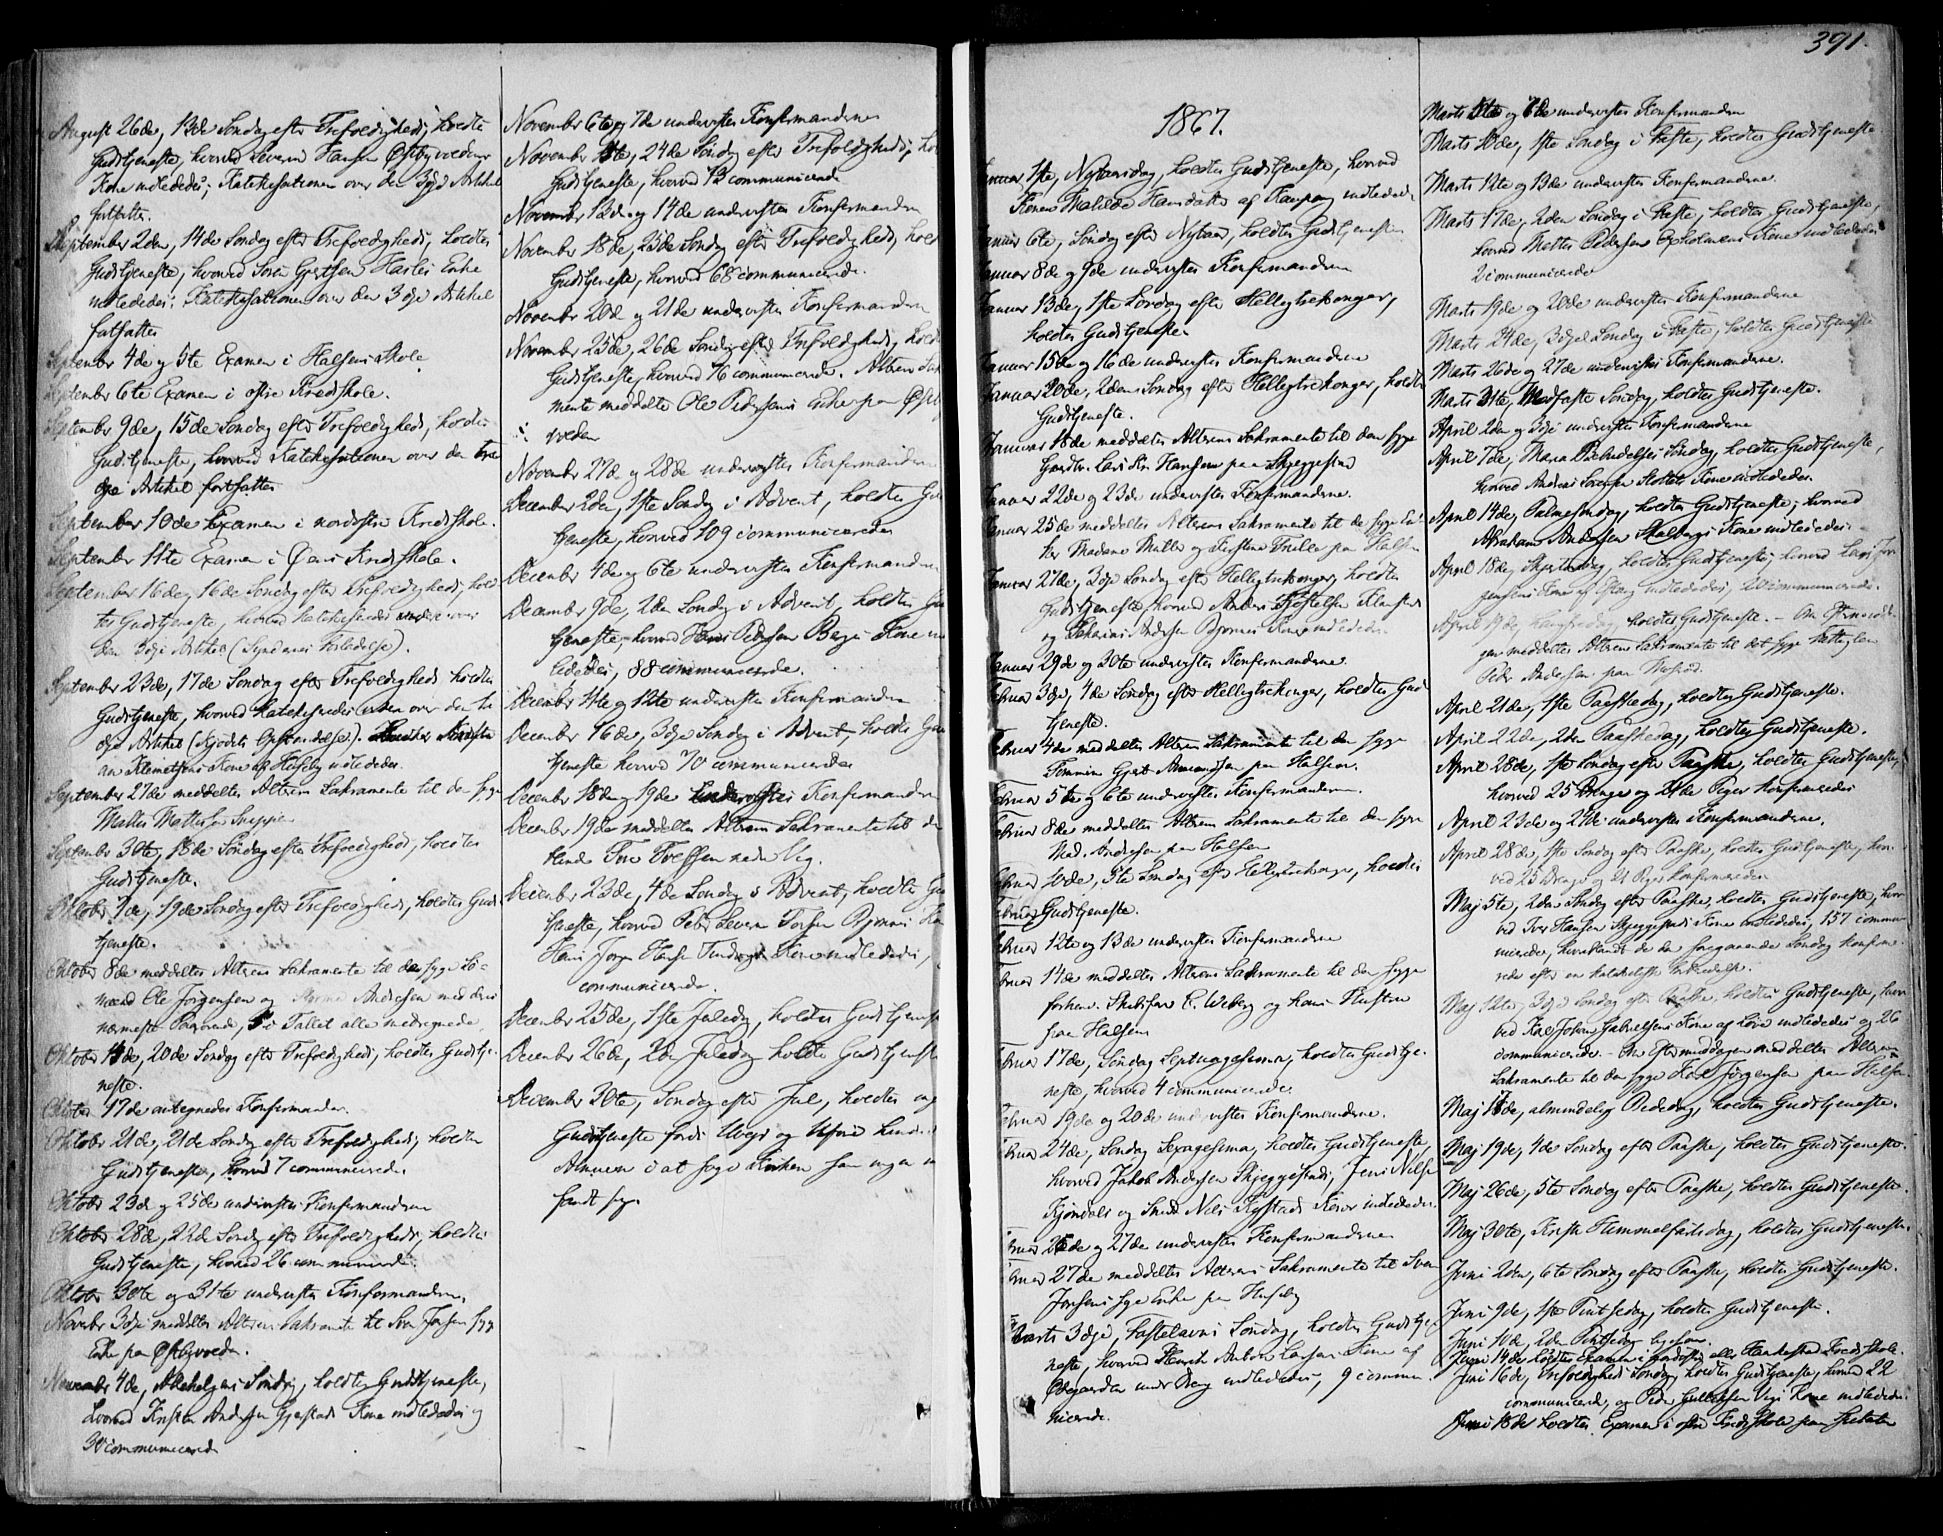 August 26de, 13de Søndag efter Trefoldighed, holdte
Gudstjeneste, hvorved Severin Hansen Østbyvoldens
Kone indlededes; Katekesationen over den 3die Artikel
fortsattes.
September 2den, 14de Søndag efter Trefoldighed, holdtes
Gudstjeneste, hvorved Enke
indlededes; Katekesationen over den 3die Artikel
fortsattes
September 4de og 5te Examen i Halsens Skole
September 6te Examen i østre Kredsskole.
September 9de, 15de Søndag efter Trefoldighed, holdtes
Gudstjeneste, hvorved Katekesationen over den tre
die Artikel fortsattes
September 10de Examen i nordostre Kredsskole.
September 11te Examen i Kredsskole.
September 16de, 16de Søndag efter Trefoldighed, hold
tes Gudstjeneste, hvorved katekiseredes over
den 3die Artikel (Syndernes Forladelse).
September 23de, 17de Søndag efter Trefoldighed holdtes
Gudstjeneste, hvorved katekiseredes over den tre
die Artikel (Kjødets Opstandelse).
Kone af Huseby indlededes.
September 27de meddeltes Alterens Sakramente til den syge
Mathis Mathisen
September 30te, 18de Søndag efter Trefoldighed, holdtes
Gudstjeneste.
Oktober 7de, 19de Søndag efter Trefoldighed, holdtes Guds
tjeneste.
Oktober 8de meddeltes Alterens Sakramente til den syge Sø-
mand Ole Jørgensen og Andersen med deres
nærmeste Paarørende, Tallet alle medregnede.
Oktober 14de, 20de Søndag efter Trefoldighed, holdtes Gudstje-
neste.
Oktober 17de antegnedes Konfirmander.
Oktober 21de, 21de Søndag efter Trefoldighed, holdtes
Gudstjeneste, hvorved 7 communicerede.
Oktober 23de og 25de undervistes Konfirmanderne
Oktober 28de, 22de Søndag efter Trefoldighed, holdtes
Gudstjeneste, hvorved 26 communicerede.
Oktober 30te og 31te undervistes Konfirmanderne.
November 3die meddeltes Alterens Sakramente til syge
Enke paa Østbyvolden.
November 4de, Allehelgens Søndag, holdtes Gudstjeneste,
hvorved Kristen Andersen Gjestads Kone indlededes og
30 communicerede
November 6te og 7de undervistes Konfirmanderne
November 11te, 24de Søndag efter Trefoldighed, hol
Gudstjeneste, hvorved 13 communicerede
November 13de og 14de undervistes Konfirmanderne
November 18de, 25de Søndag efter Trefoldighed, hold
Gudstjeneste, hvorved 68 communicerede.
November 20de og 21de undervistes Konfirmanderne
November 25de, 26de Søndag efter Trefoldighed, hold
Gudstjeneste, hvorved 76 communicerede. Alterens Sakra
mente meddeltes Ole Pedersens Enke paa Østby
volden
November 27de og 28de undervistes Konfirmanderne
December 2den, 1ste Søndag i Advent, holdtes Guds
tjeneste, hvorved 109 communicerede
December 4de og 6te undervistes Konfirmanderne
December 9de, 2den Søndag i Advent, holdtes Guds
tjeneste, hvorved Hans Pedersen Bergs Kone ind
lededes, 88 communicerede.
December 11te og 12te undervistes Konfirmanderne
December 16de, 3die Søndag i Advent, holdtes Guds
tjeneste hvorved 70 communicerede
December 18de og 19de undervistes Konfirmanderne
December 19de meddeltes Alterens Sakramente til den
December 23de, 4de Søndag i Advent, holdtes Guds
tjeneste, hvorved Peder Severin
Hans Jørgen Hansen Kone indlededes,
communicerede.
December 25de, 1ste Juledag, holdtes Gudstjeneste
December 26de, 2den Juledag holdtes Gudstjeneste
December 30te, Søndag efter Jul, holdtes ingen
Gudstjeneste fordi Uveir og Uføre hindrede
Almuen i at søge Kirken
1867.
Januar 1ste, Nytaarsdag, holdtes Gudstjeneste, hvorved
Konen Mathilde Hansdatter af Kaupang indlededes
Januar 6te, Søndag efter Nytaar, holdtes Gudstjeneste
Januar 8de og 9de undervistes Konfirmanderne
Januar 13de, 1ste Søndag efter Helligtrekonger,
holdtes Gudstjeneste
Januar 15de og 16de undervistes Konfirmanderne
Januar 20de, 2den Søndag efter Helligtrekonger, holdtes
Gudstjeneste.
Januar 18de meddeltes Alterens Sakramente til den syge
Gaardbr. Lars Hansen paa Skjeggestad
Januar 22de og 23de undervistes Konfirmanderne.
Januar 25de meddeltes Alterens Sakramente til de syge En-
ker Madame Møller og Kirstine paa Halsen
Januar 27de, 3die Søndag efter Helligtrekonger, holdtes
Gudstjeneste, hvorved Anders Kjøstelsen Klaastads
og Zakarias Andersen Bjønnes Koner indlededes.
Januar 29de og 30te undervistes Konfirmanderne.
Februar 3die, 4de Søndag efter Helligtrekonger, holdtes Guds
tjeneste.
Februar 4de meddeltes Alterens Sakramente til den syge
Tømmermand Amundsen paa Halsen.
Februar 5te og 6te undervistes Konfirmanderne.
Februar 8de meddeltes Alterens Sakramente til den syge
Mad. Andersen paa Halsen
Februar 10de, 5te Søndag efter Helligtrekonger, holdtes
Gudstjeneste.
Februar 12te og 13de undervistes Konfirmanderne
Februar 14de meddeltes Alterens Sakramente til den syge
forhen. Skibsfører C. Weberg og hans Hustru
paa Halsen
Februar 17de, Søndag Septuagesima, holdtes Gudstje-
neste, hvorved 4 communicerede.
Februar 19de og 20de undervistes Konfirmanderne.
Februar 24de, Søndag Sexagesima, holdtes Gudstjeneste,
hvorved Jakob Andersen Skjeggestads, Jens Nilsen
Kjøndals og Smed Nils Koner indlededes.
Februar 26de og 27de undervistes Konfirmanderne
Februar 27de meddeltes Alterens Sakramente til Sven
syge Enke paa Huseby
Marts 3die, Fastelavns Søndag, holdtes Gudstje
neste, hvorved Henrik Anton Larsens Kone af
Ødegaarden under Berg indlededes, 9 commu
nicerede.
391.
Marts 5te og 6te undervistes Konfirmanderne
Marts 10de, 1ste Søndag i Faste, holdtes Gudstjeneste.
Marts 12te og 13de undervistes Konfirmanderne.
Marts 17de, 2den Søndag i Faste, holdtes Gudstjeneste,
hvorved Mathis Pedersen Kone indlededes
2 communicerede
Marts 19de og 20de undervistes Konfirmanderne
Marts 24de, 3die Søndag i Faste, holdtes Gudstjeneste
Marts 26de og 27de undervistes Konfirmanderne.
Marts 31te, Midfaste Søndag, holdtes Gudstjeneste.
April 2den og 3die undervistes Konfirmanderne
April 7de, Maria Bebudelses Søndag, holdtes Gudstjeneste,
hvorved Anders Kone indlededes.
April 14de, Palmesøndag, holdtes Gudstjeneste, hvorved
Abraham Andersen Skalbergs Kone indlededes.
April 18de, Skjærtorsdag, holdtes Gudstjeneste, hvorved Lars Jør
gensens Kone af indlededes, 20 communicerede.
April 19de Langfredag holdtes Gudstjeneste. - Om Eftermidda-
gen meddeltes Alterens Sakramente til det syge
Peder Andersen paa
April 21de, 1ste Paaskedag, holdtes Gudstjeneste.
April 22de, 2den Paaskedag, holdtes Gudstjeneste.
April 28de, 1ste Søndag efter Paaske, holdtes Gudstjeneste,
hvorved 25 Drenge og 21de Piger konfirmeredes
April 23de og 24de undervistes Konfirmanderne.
April 28de, 1ste Søndag efter Paaske, holdtes Gudstjeneste, hvor-
ved 25 Drenge og 21 Piger konfirmeredes
Maj 5te, 2den Søndag efter Paaske, holdtes Gudstjeneste, hvor
ved Iver Hansen Skjeggestads Kone indlededes, 157 commu-
nicerede, hvoriblandt de den foregaaende Søndag konfirme-
rede efter en kateketisk Indledelse.
Maj 12te, 3die Søndag efter Paaske, holdtes Gudstjeneste, hvor
ved Karl Johan Gabrielsens Kone af indlededes og 26
communicerede. - Om Eftermiddagen meddeltes Alterens
Sakramente til den syge Jørgensen paa Halsen.
Maj 17de, almindelig Bededag, holdtes Gudstjeneste.
Maj 19de, 4de Søndag efter Paaske, holdtes Gudstjeneste.
Maj 26de, 5te Søndag efter Paaske, holdtes Gudstjeneste.
Maj 30te, Kristi Himmelfartsdag, holdtes Gudstjeneste.
Juni 2den, 6te Søndag efter Paaske, holdtes Gudstjeneste.
Juni 9de, 1ste Pintsedag, holdtes Gudstjeneste.
Juni 10de, 2den Pintsedag ligesaa.
Juni 14de holdtes Examen i eller Kredsskole.
Juni 16de, Trefoldigheds Søndag, holdtes Gudstjeneste, hvorved 22
communicerede, og Peder Gulliksen Kone indlededes.
Juni 18de holdtes Examen i østre Kredsskole paa